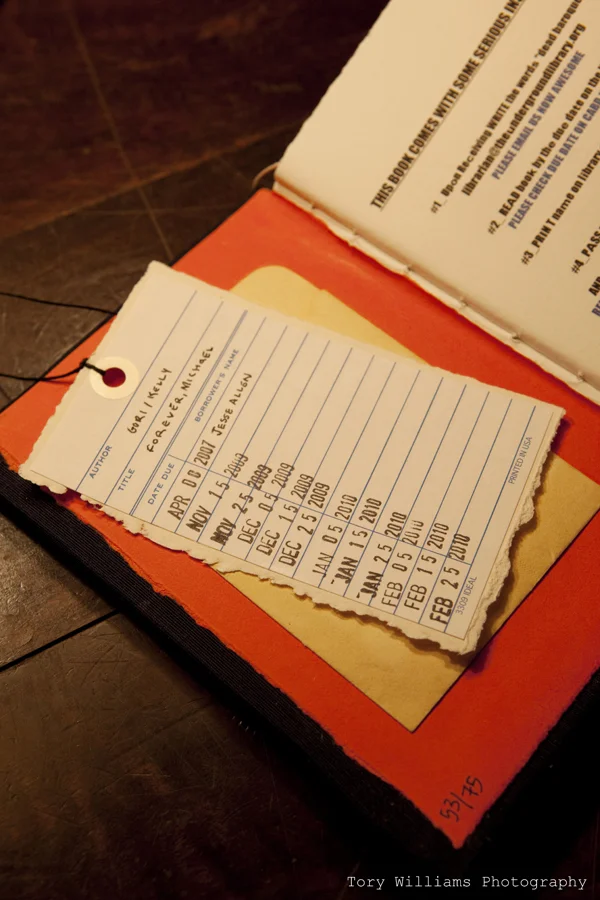 THIS BOOK COMES WITH SOME SERIOUS
#1_ Upon Receiving WRITE the words "dead baroque
librarian@theundergroundlibrary.org
PLEASE EMAIL US NOW AWESOME
#2_ READ book by the due date on the
PLEASE CHECK DUE DATE ON CARD
#3_PRINT name on library
#4_PASS
AND
AUTHOR GORI / KELLY
TITLE FOREVER, MICHAEL
DATE DUE BORROWER'S NAME
APR 06 2007 JESSE ALLEN
NOV 15 2009
NOV 25 2009
DEC 05 2009
DEC 15 2009
DEC 25 2009
JAN 05 2010
JAN 15 2010
JAN 25 2010
FEB 05 2010
FEB 15 2010
FEB 25 2010
3309 IDEAL PRINTED IN USA
53/75
Tory Williams Photography